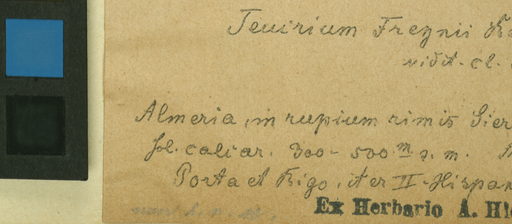 Teucrium Freynii
vidit. cl.
Almeria, in rupium rimis Sier
sol. calcar. 300-500 m s. m.
Porta et Rigo, iter II Hispan
Ex Herbario A. Hi